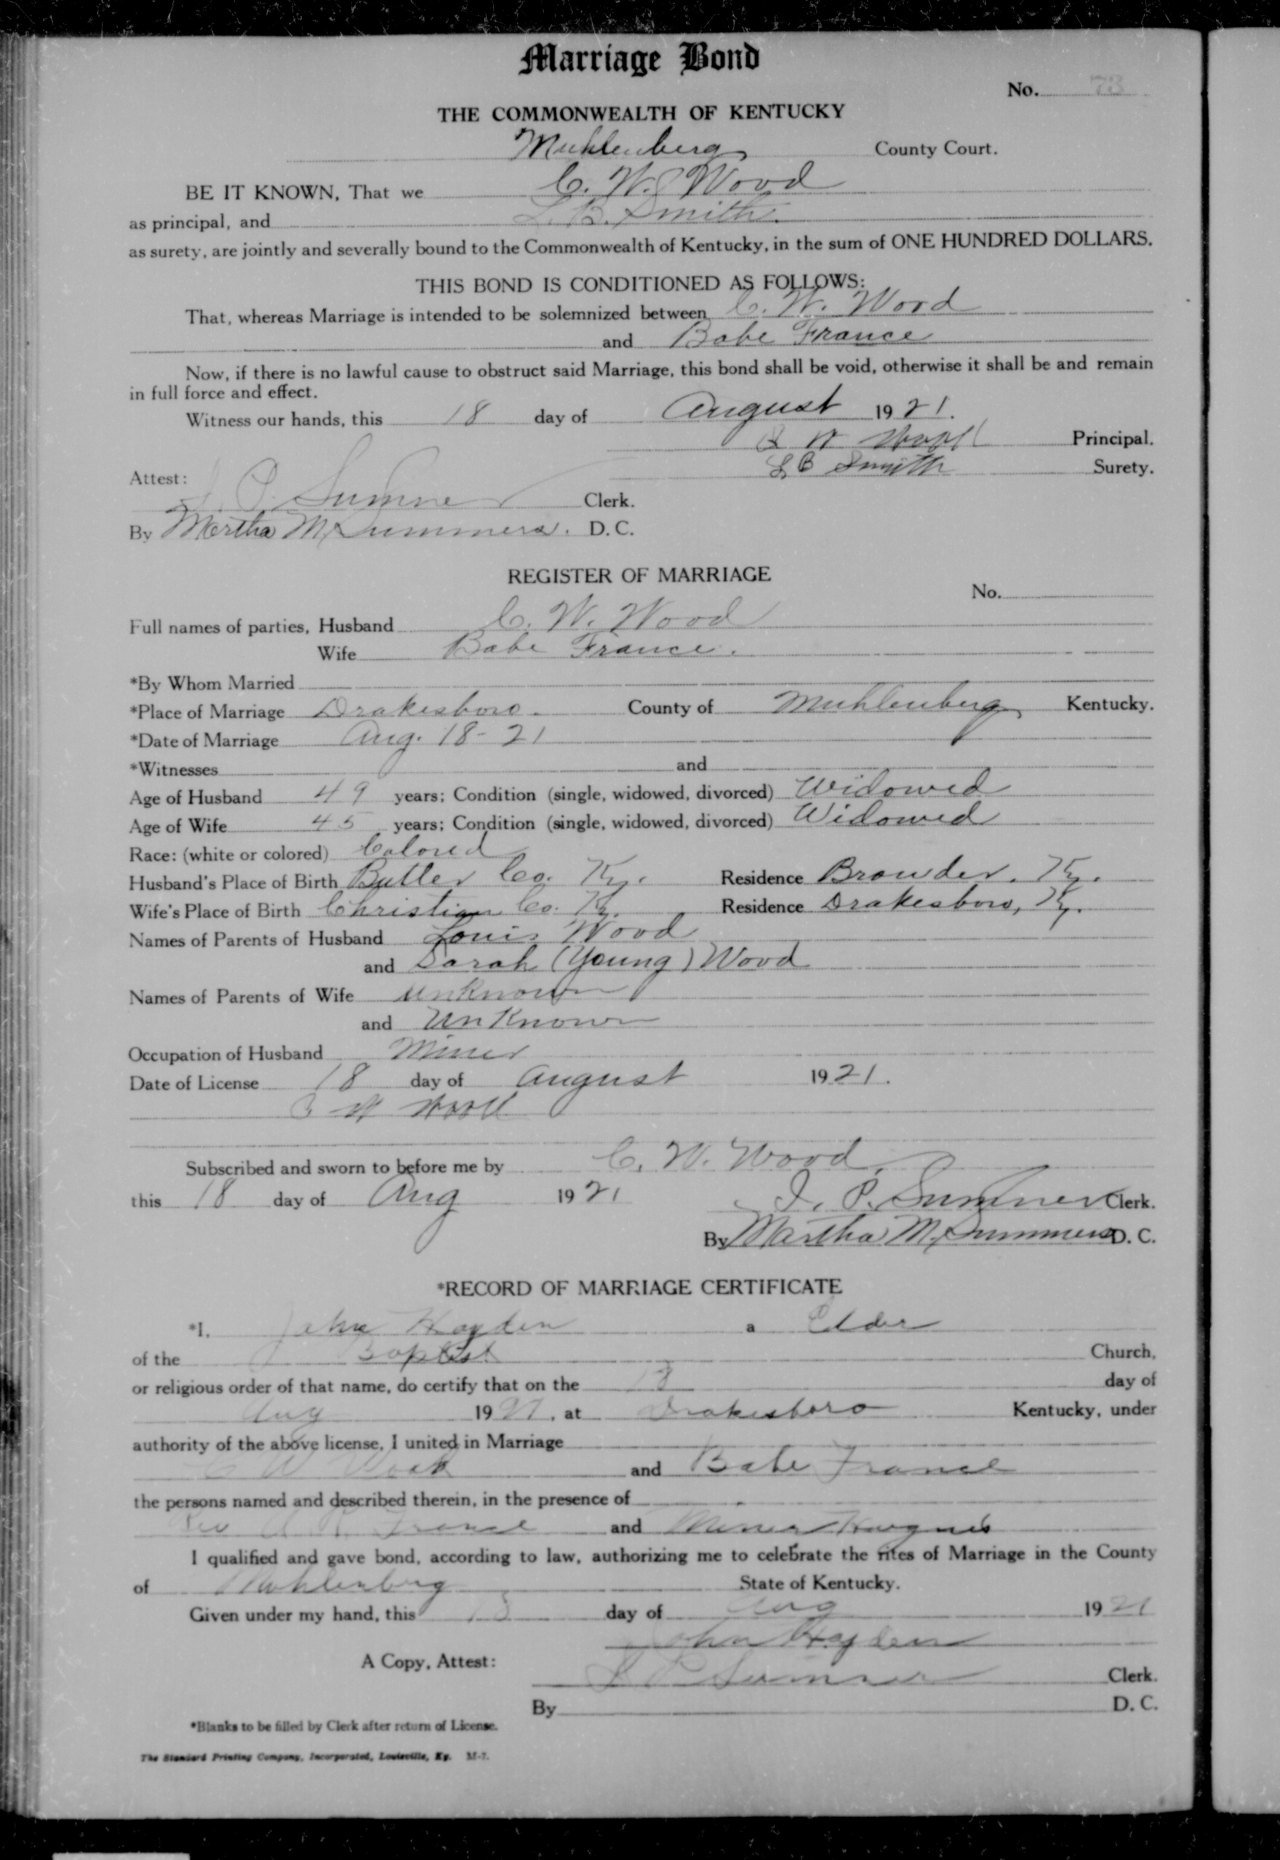 Marriage Bond
No. 73
THE COMMONWEALTH OF KENTUCKY
Muhlenberg County Court.
BE IT KNOWN, That we C. W. Wood
as principal, and L. B. Smith.
as surety, are jointly and severally bound to the Commonwealth of Kentucky, in the sum of ONE HUNDRED DOLLARS.
THIS BOND IS CONDITIONED AS FOLLOWS:
That, whereas Marriage is intended to be solemnized between C. W. Wood
and Babe France
Now, if there is no lawful cause to obstruct said Marriage, this bond shall be void, otherwise it shall be and remain
in full force and effect.
Witness our hands, this 18 day of August 1921.
W Wood Principal.
L B Smith Surety.
Attest:
Sumner Clerk.
By Martha M. Summers. D. C.
REGISTER OF MARRIAGE
No.
Full names of parties, Husband C. W. Wood
Wife Babe France.
*By Whom Married
*Place of Marriage Drakesboro. County of Muhlenberg Kentucky.
*Date of Marriage Aug. 18-21
*Witnesses and
Age of Husband 49 years; Condition (single, widowed, divorced) Widowed
Age of Wife 45 years; Condition (single, widowed, divorced) Widowed
Race: (white or colored) Colored
Husband's Place of Birth Butler Co. Ky. Residence Browder, Ky.
Wife's Place of Birth Christian Co. Ky. Residence Drakesboro, Ky.
Names of Parents of Husband Louis Wood
and Sarah (Young) Wood
Names of Parents of Wife unknown
and UnKnown
Occupation of Husband Miner
Date of License 18 day of August 1921.
C W Wood
Subscribed and sworn to before me by C. W. Wood,
this 18 day of Aug 1921 P. Sumner Clerk.
By Martha M. Summers D. C.
*RECORD OF MARRIAGE CERTIFICATE
*I, John Hayden a Elder
of the Baptist Church,
or religious order of that name, do certify that on the 18 day of
Aug 1921, at Drakesboro Kentucky, under
authority of the above license, I united in Marriage
C W Wood and Babe France
the persons named and described therein, in the presence of
Rev A. R. France and Miner
I qualified and gave bond, according to law, authorizing me to celebrate the rites of Marriage in the County
of Muhlenberg State of Kentucky.
Given under my hand, this 18 day of Aug 1921
John Hayden
A Copy, Attest: P Sumner Clerk.
By D. C.
*Blanks to be filled by Clerk after return of License.
The Standard Printing Company, Incorporated, Louisville, Ky. M-7.